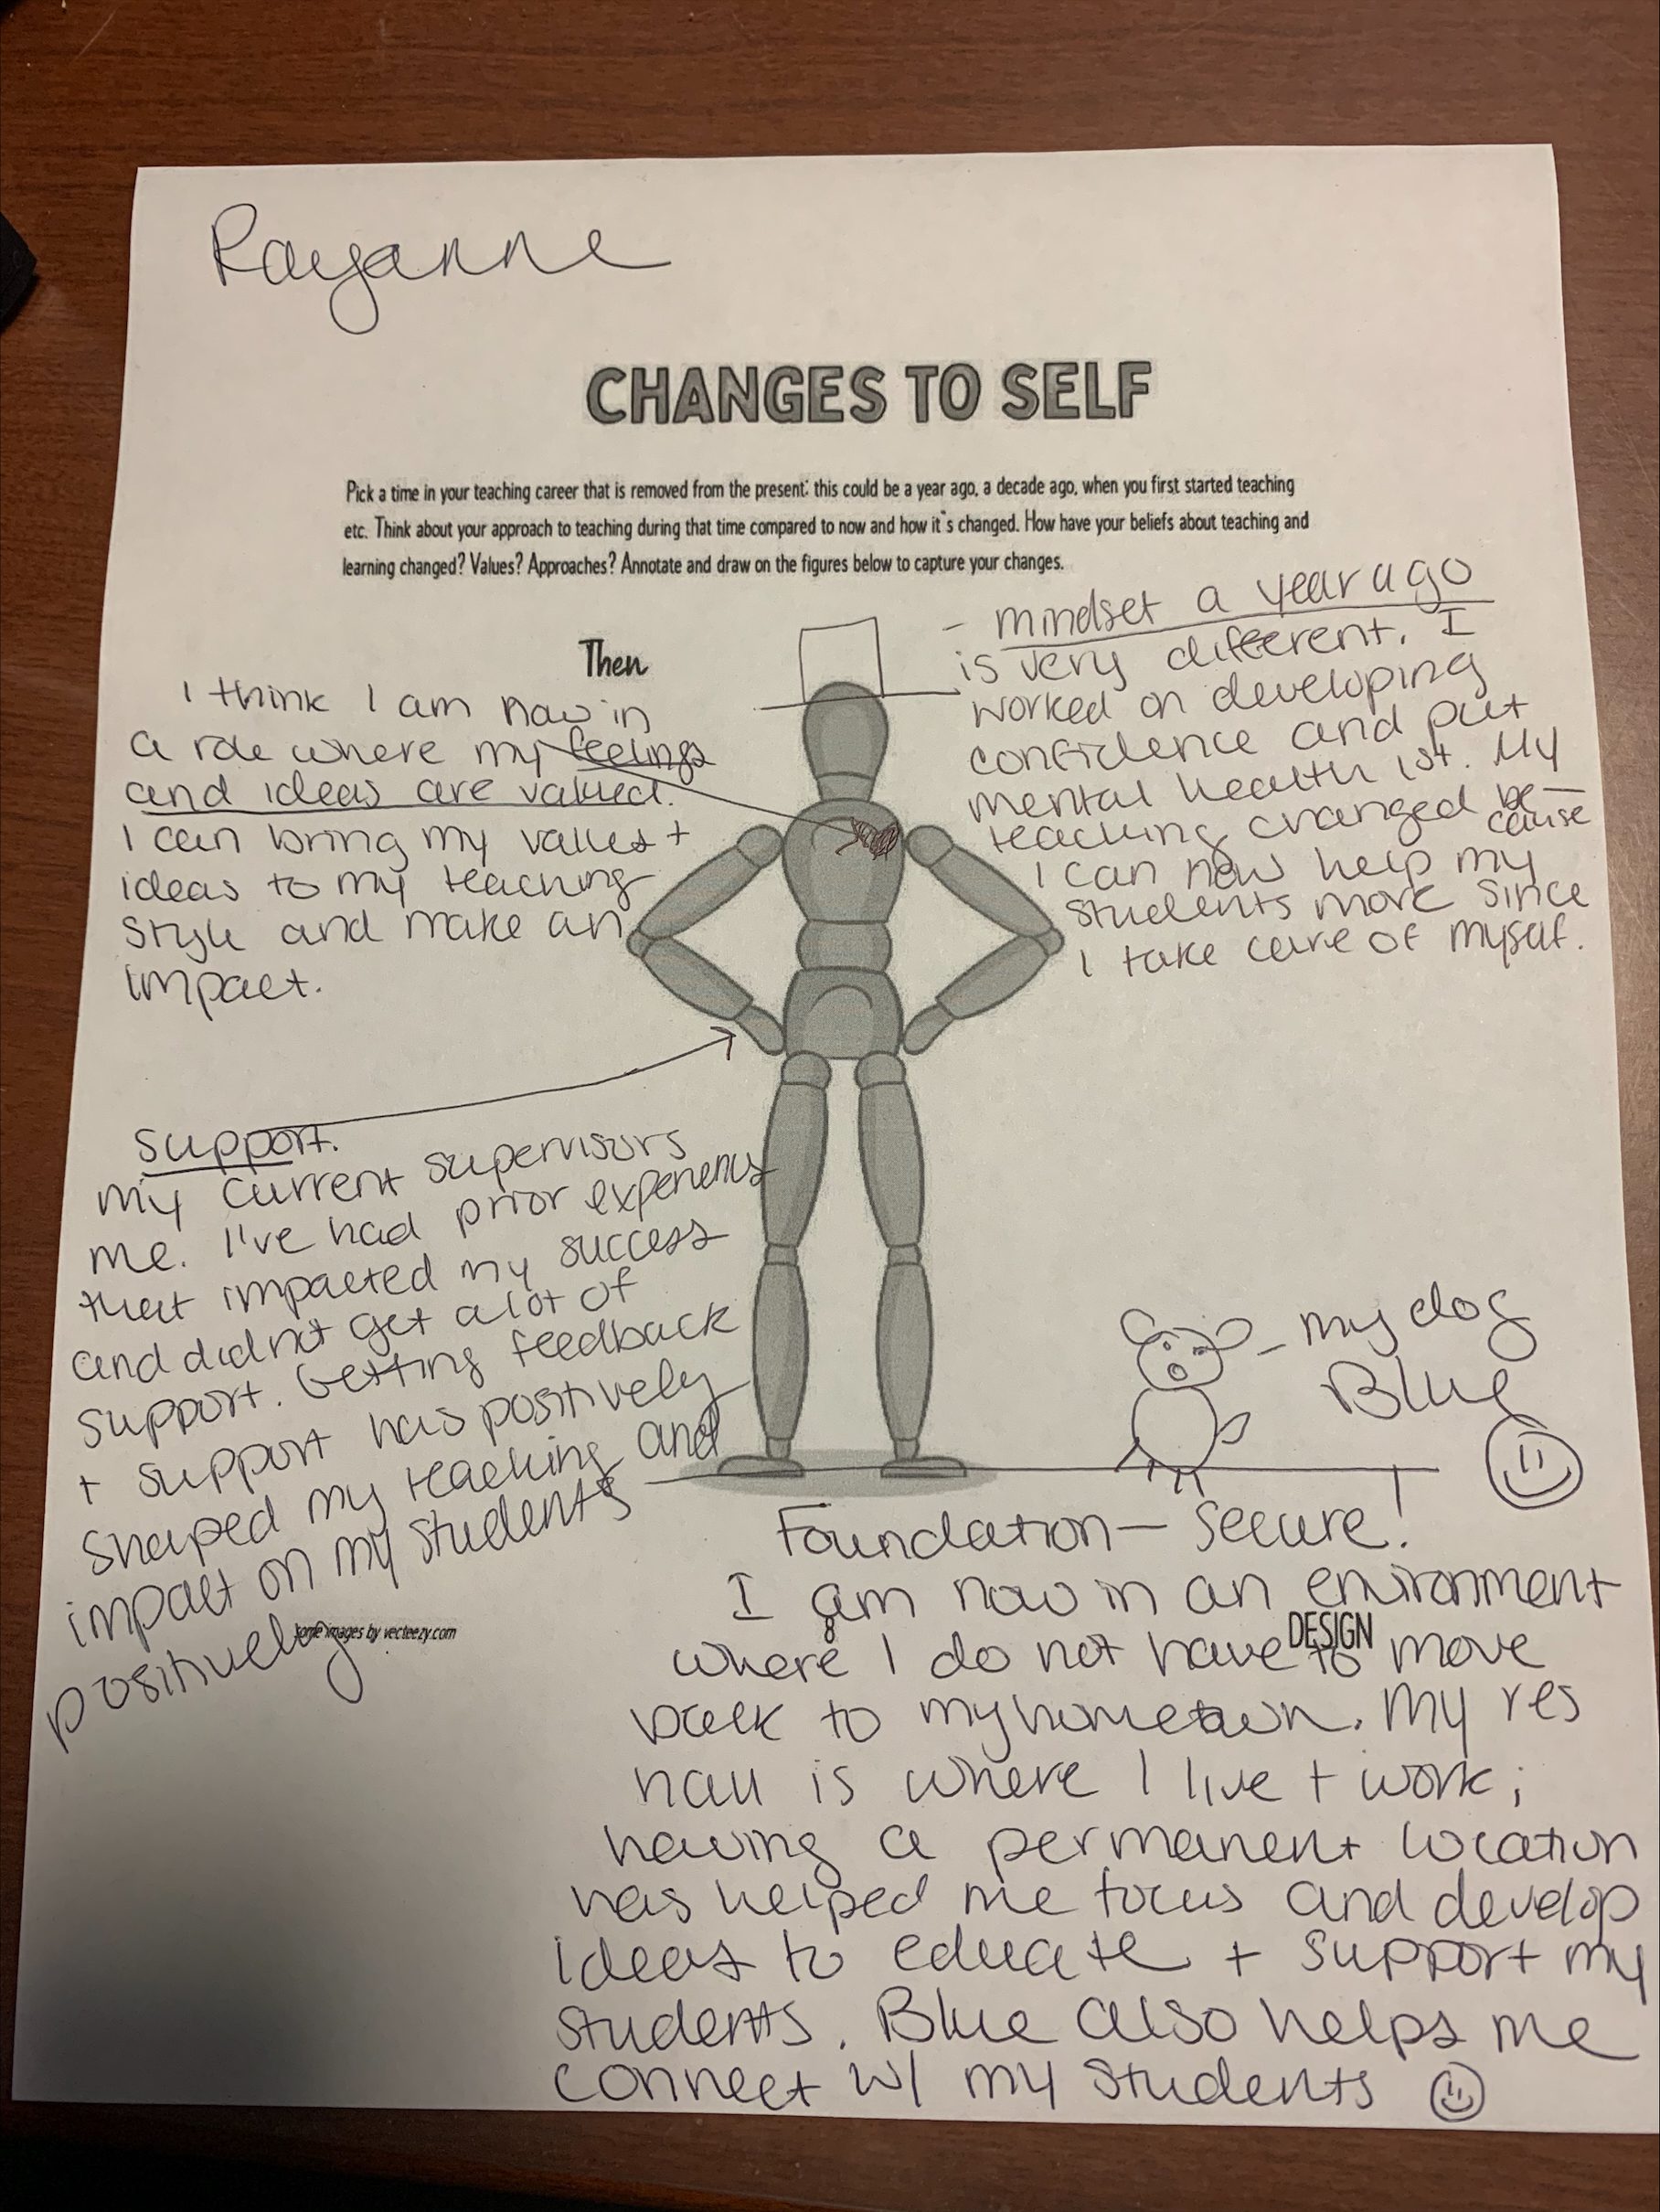 Rayanne
CHANGES TO SELF
Pick a time in your teaching career that is removed from the present: this could be a year ago, a decade ago, when you first started teaching
etc. Think about your approach to teaching during that time compared to now and how it's changed. How have your beliefs about teaching and
learning changed? Values? Approaches? Annotate and draw on the figures below to capture your changes.
Then
I think I am now in
a role where my feelings
and ideas are valued.
I can bring my values +
ideas to my teaching
style and make an
impact.
- mindset a year ago
is very different. I
worked on developing
confidence and put
mental health 1st. My
teaching changed be-
cause
I can now help my
students more since
I take care of myself.
support.
my current supervisors
me. I've had prior experiences
that impacted my success
and did not get a lot of
support. Getting feedback
+ support has positively
shaped my teaching and
impact on my students
positively
- my dog
Blue
Foundation - Secure!
I am now in an environment
where I do not have to move
back to my hometown. My res
hall is where I live + work;
having a permanent location
has helped me focus and develop
ideas to educate + support my
students. Blue also helps me
connect w/ my students
some images by vecteezy.com
8
DESIGN